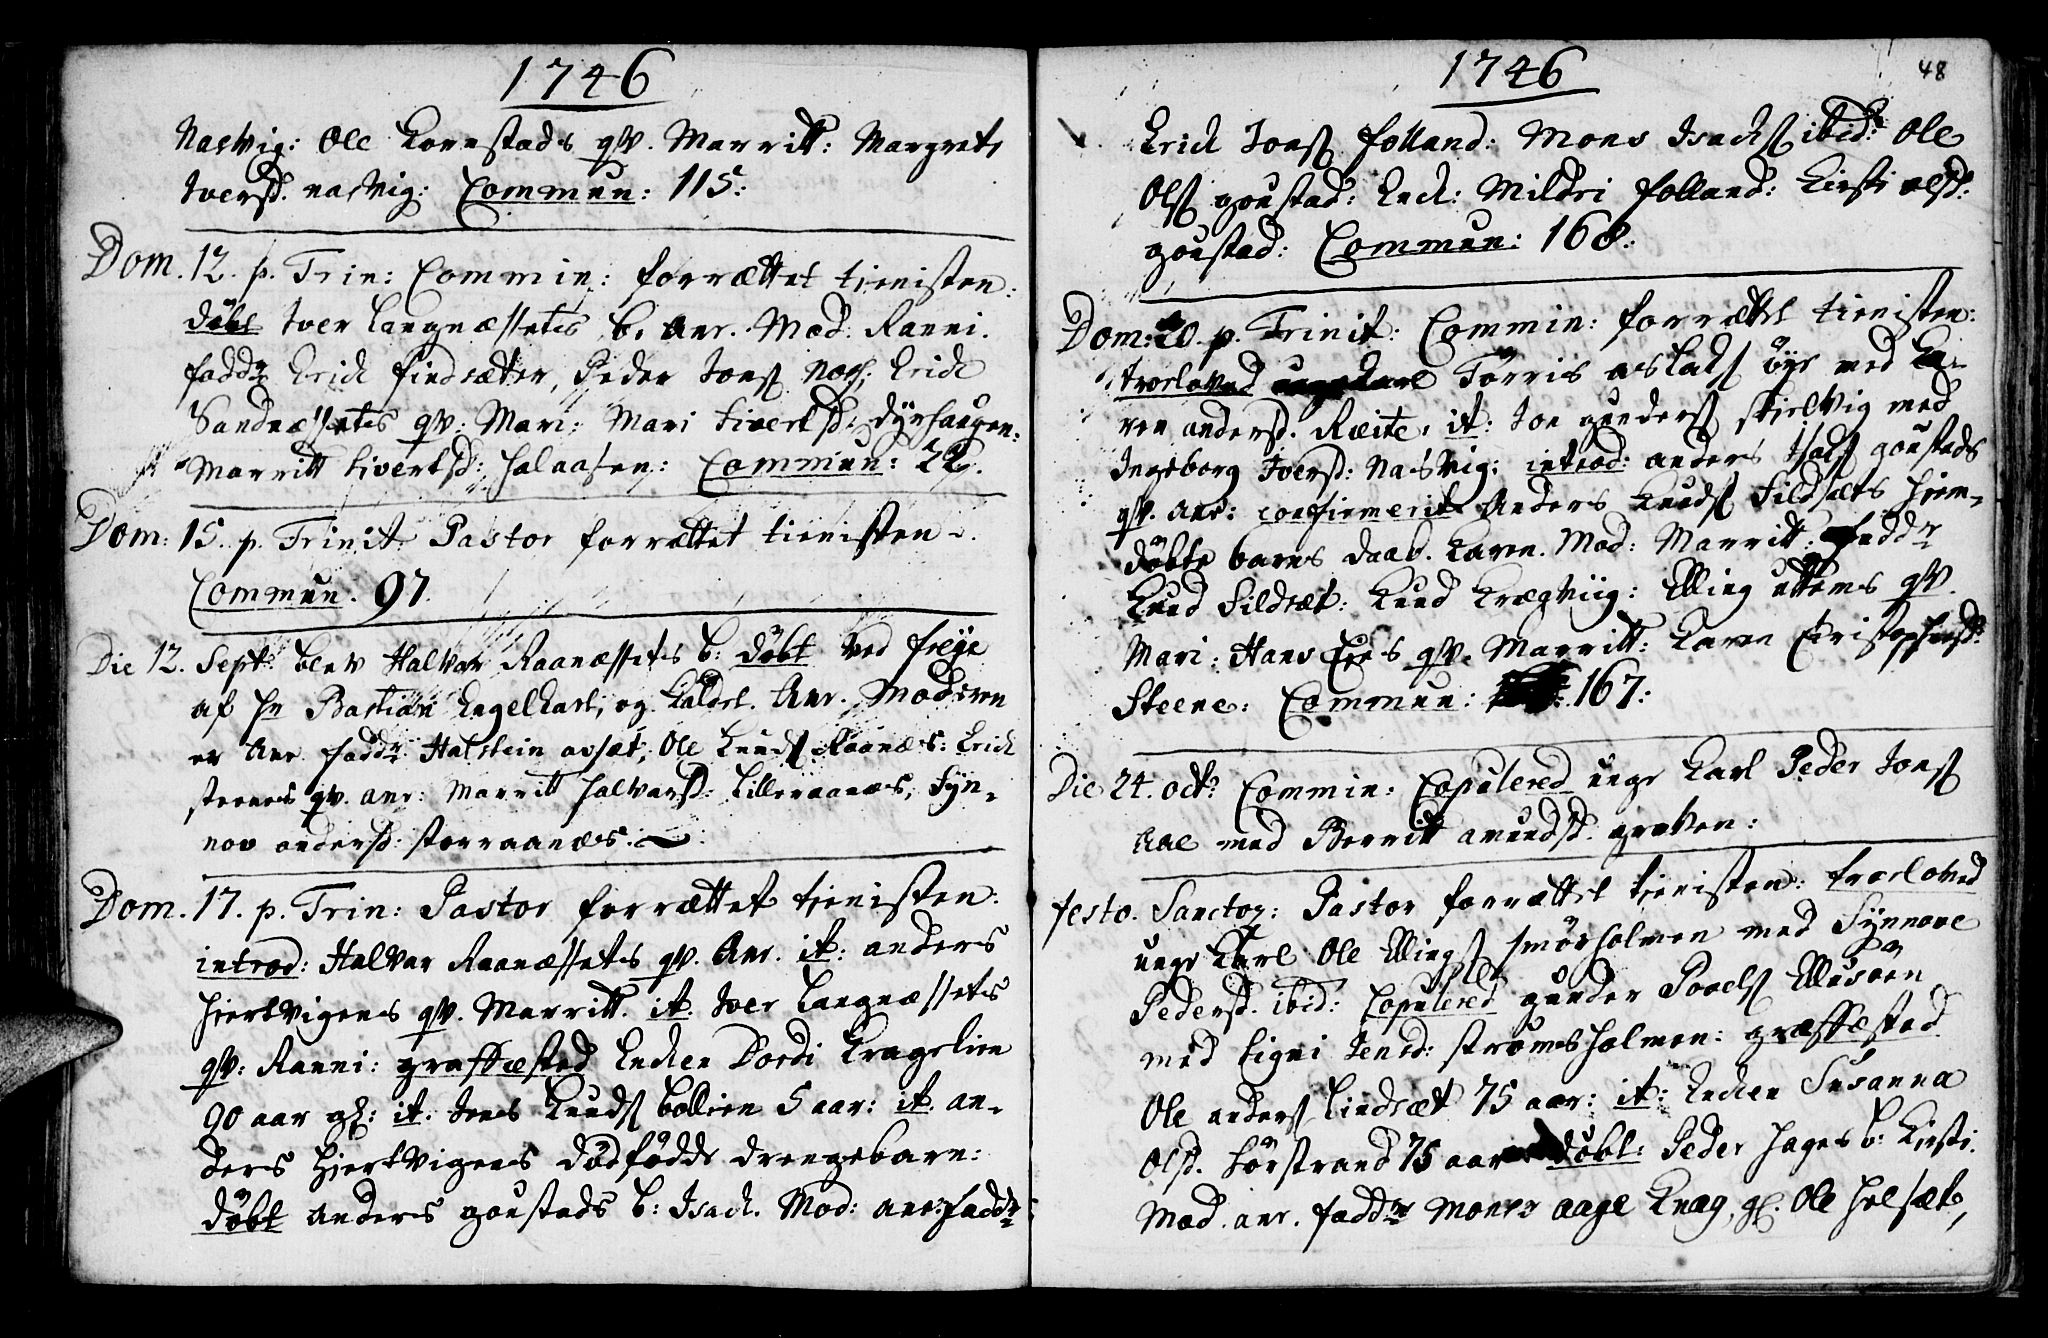 1746
Nasvig: Ole Kornstads qv. Marritt: Margrete
Iversd. nasvig: Commun: 115:
Dom. 12. p. Trin: Commin: forrættet tienisten:
döbt Iver Langnæssets b. Anr. Mod. Ranni.
fadd Erich findsætter, Peder Jons Nos; Erich
Sandnæssets qv: Mari: Mari Sivertsd: dyrhaugen:
Marritt Sivertsd: halaasen: Commun: 22.
Dom: 15. p. Trinit: Pastor forrættet tienisten.
Commun. 97.
Die 12. Sept: blev Halvar Raanæssets b: döbt ved freye
af Hr Bastian Engelhart, og kaldet. Anr. Moderen
er Anr fadd Halstein ovsæt, Ole Knuds Raanæs: Erich
steenes qv. anr: Marritt Halvarsd: Lilleraanæs, Syn-
nov andersd: storraanæs.
Dom. 17. p. Trin: Pastor forrættet tienisten:
introd: Halvar Raanæssets qv. Anr. it: anders
Hiertvigens qv. Marritt. it. Iver Langnæssets
qv: Ranni: græffæsted Enchen Dordi Kragelien
90 aar gl: it. Jens Knuds bollien 5 aar: it. an-
ders Hiertvigens dödfödde drengebarn:
döbt anders goustads b: Isach. Mod: anr: fadd
1746
48
Erich Jons folland: Mons Isachs ibid: Ole
Ols goustad: Ench: Mildri folland: Kirsti olsd.
goustad: Commun: 168:
Dom: 20. p. Trinit: Commin: forrættet tienisten:
troeloved Torris aslaks öye med Ka-
ren andersd. Ræite. it: Jon gunders skielvig med
Ingeborg Iversd: Nasvig: introd: anders Isachs goustads
qv. anr: confirmerit Anders Knuds Sildsæts hiem-
döbte barns daab. Karen. Mod: Marritt: fadd
Knud Sildsæt: Knud Kragviig: Elling uttems qv.
Mari: Hans qv. Marritt: Karen Christophersd:
Steene: Commun: 167:
Die 24. oct: Commin: Copulered unge Karl Peder Jons
Aae med Berritt amundsd. groben:
festo. Sanctor: Pastor forrættet tienisten: troeloved
unge Karl Ole Ellings smörholmen med Synnove
Pedersd. ibid: Copulered gunder Povels Ellusöen
med Signi Jensd: strömsholmen: græffæsted
Ole anders Lindsæt 75 aar: it: Enchen Susanna
Olsd. Sörstrand 75 aar döbt: Peder Hages b: Kirsti.
Mod. anr. fadd Mons aage Knag, gl. Ole Holsæt,